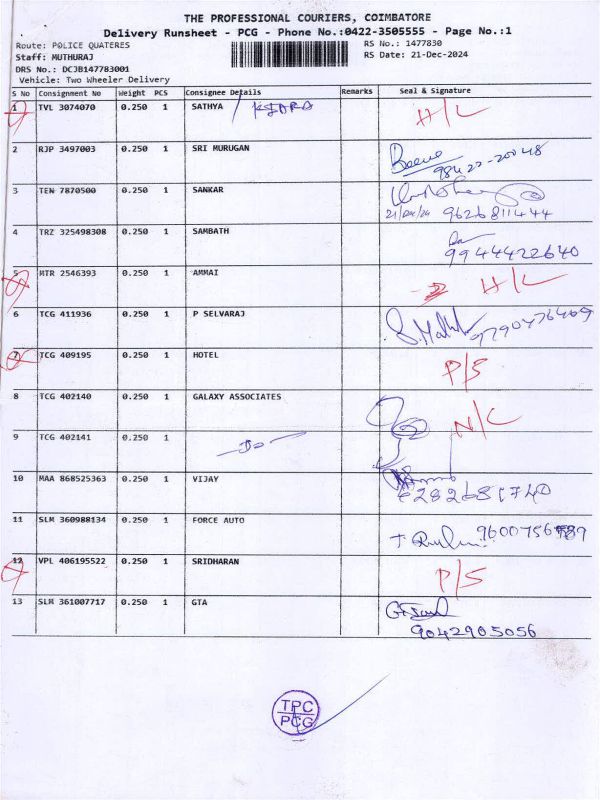 THE PROFESSIONAL COURIERS, COIMBATORE
Delivery Runsheet - PCG - Phone No.:0422-3505555 - Page No.:1
Route: POLICE QUATERES
RS No.: 1477830
Staff: MUTHURAJ
RS Date: 21-Dec-2024
DRS No.: DCJB147783001
Vehicle: Two Wheeler Delivery
S No Consignment No Weight PCS Consignee Details Remarks Seal & Signature
1 TVL 3074070 0.250 1 SATHYA / H/L
2 RJP 3497003 0.250 1 SRI MURUGAN
98422-20048
3 TEN 7870500 0.250 1 SANKAR
21/Dec/24 9626811444
4 TRZ 325498308 0.250 1 SAMBATH
9944422640
5 MTR 2546393 0.250 1 AMMAI H/L
6 TCG 411936 0.250 1 P SELVARAJ
7 TCG 409195 0.250 1 HOTEL P/S
8 TCG 402140 0.250 1 GALAXY ASSOCIATES N/C
9 TCG 402141 0.250 1 -Do-
10 MAA 868525363 0.250 1 VIJAY
11 SLM 360988134 0.250 1 FORCE AUTO
12 VPL 406195522 0.250 1 SRIDHARAN P/S
13 SLM 361007717 0.250 1 GTA
9042905056
TPC
PCG